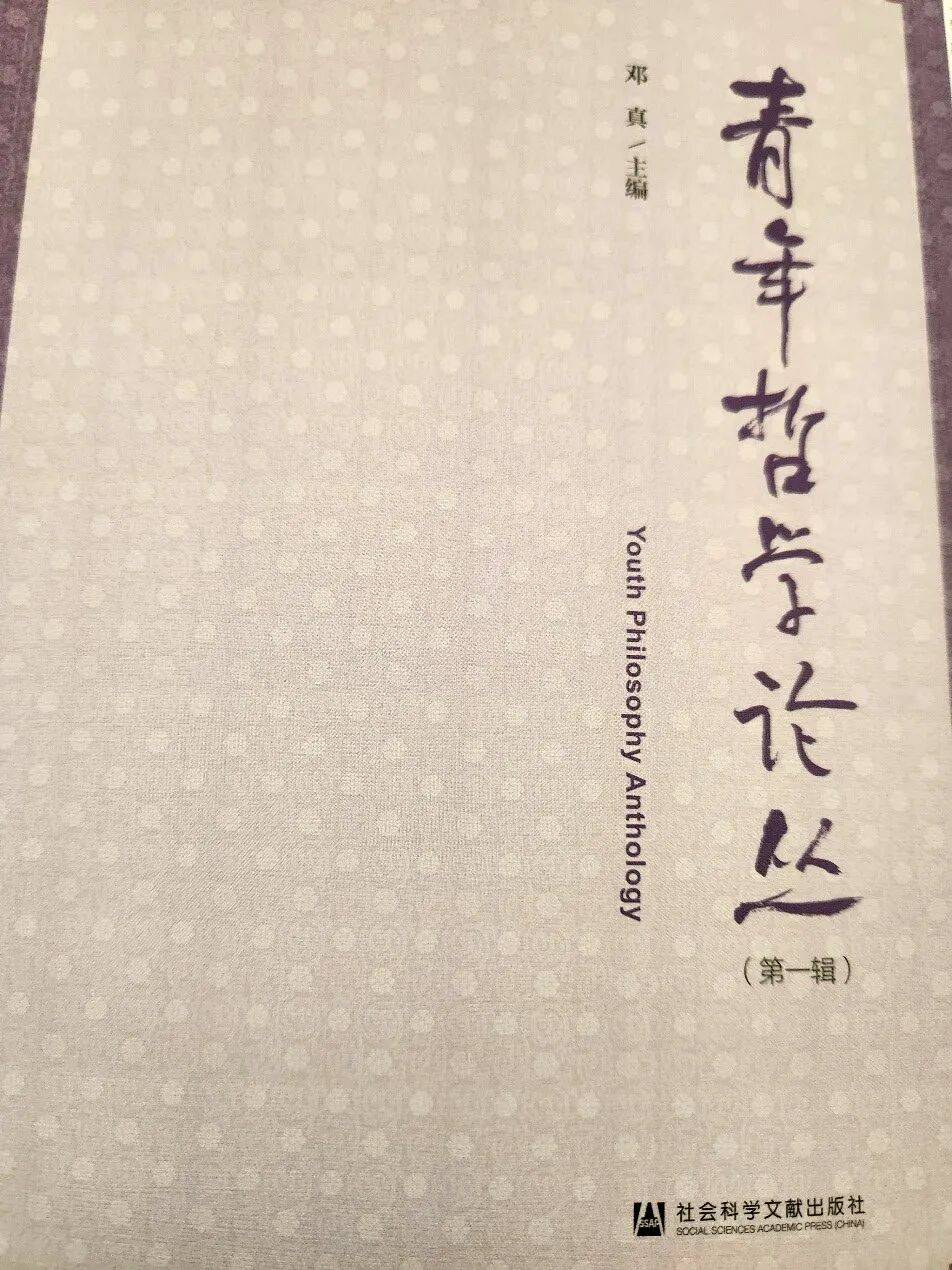 青年哲学论丛
(第一辑)
邓真/主编
Youth Philosophy Anthology
SSAP
社会科学文献出版社
SOCIAL SCIENCES ACADEMIC PRESS (CHINA)